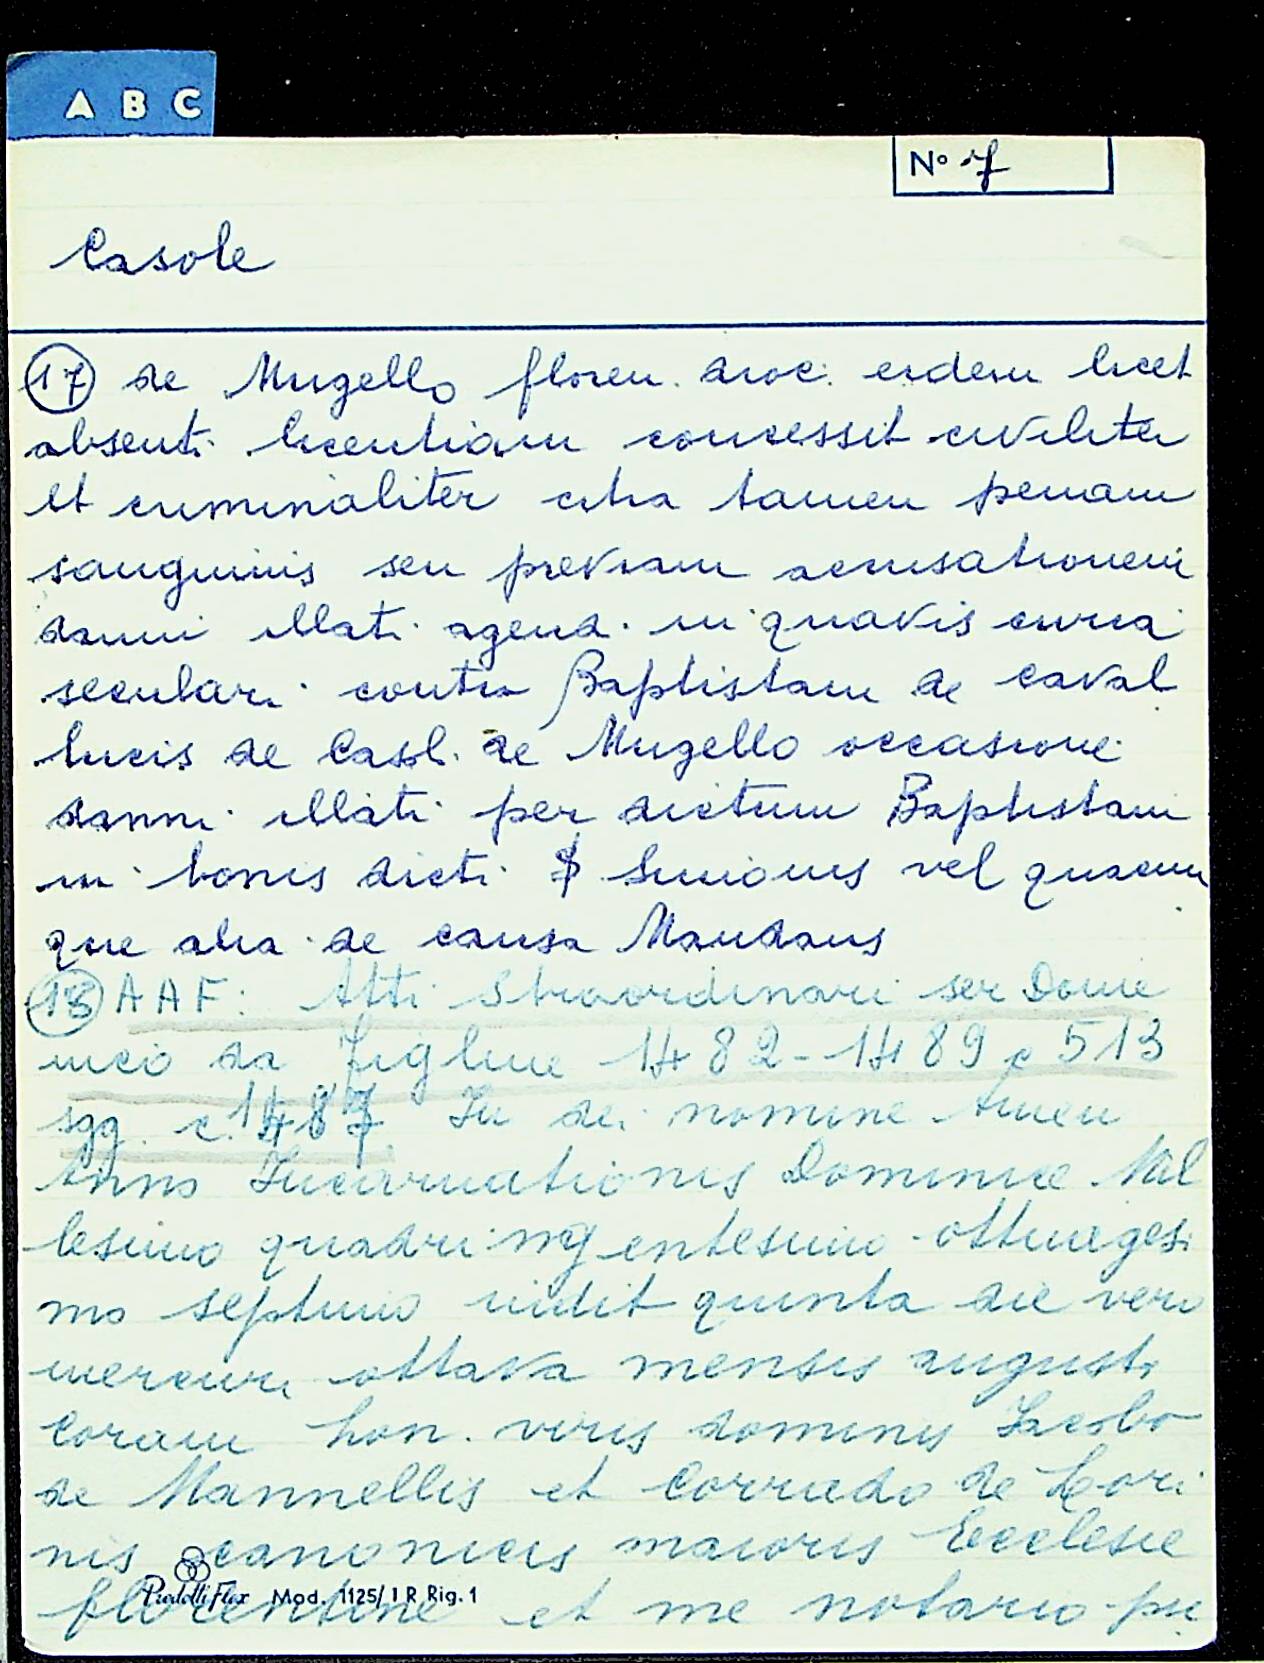 A B C
N° 7
Casole
17 de Mugello floren. dioc. eidem licet
absenti licentiam concessit civiliter
et criminaliter citra tamen penam
sanguinis seu previam accusationem
danni illati agend. in quavis curia
seculari contra Baptistam de Caval
lucis de Casl. de Mugello occasione
danni illati per dictum Baptistam
in bonis dicti Simonis vel quacum
que alia de causa Mandans
18 AAF: Atti Straordinari ser Dome
nico da Figline 1482-1489 c 513
sgg. c. 1487 In dei nomine Amen
Anno Incarnationis Dominice Mil
lesimo quadringentesimo ottuagesi
mo septimo indit quinta die vero
mercuri ottava mensis augusti
Coram hon. viris dominis Jacobo
de Mannellis et Corrado de
nis canonicis maioris Ecclesie
florentine et me notario pu
Mod. 1125/1 R Rig. 1